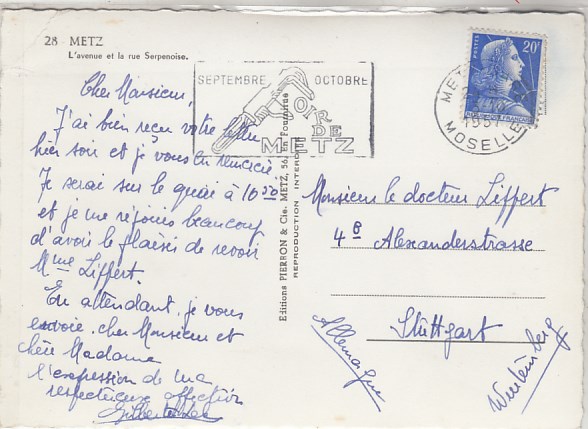 28 METZ
L'avenue et la rue Serpenoise.
SEPTEMBRE OCTOBRE
FOIR
DE
METZ
METZ
MOSELLE
20F
POSTES
Cher Monsieur,
J'ai bien reçu votre lettre
hier soir et je vous en remercie.
Je serai sur le quai à 16.50
et je me réjouis beaucoup
d'avoir le plaisir de revoir
Mme Liffert.
En attendant, je vous
envoie, cher Monsieur et
chère Madame
l'expression de ma
respectueuse affection
Editions PIERRON & Cie. METZ, 56, en Fournirue
REPRODUCTION INTERDITE
Monsieur le docteur Liffert
4B Alexanderstrasse
Stuttgart
Allemagne
Wurtemberg